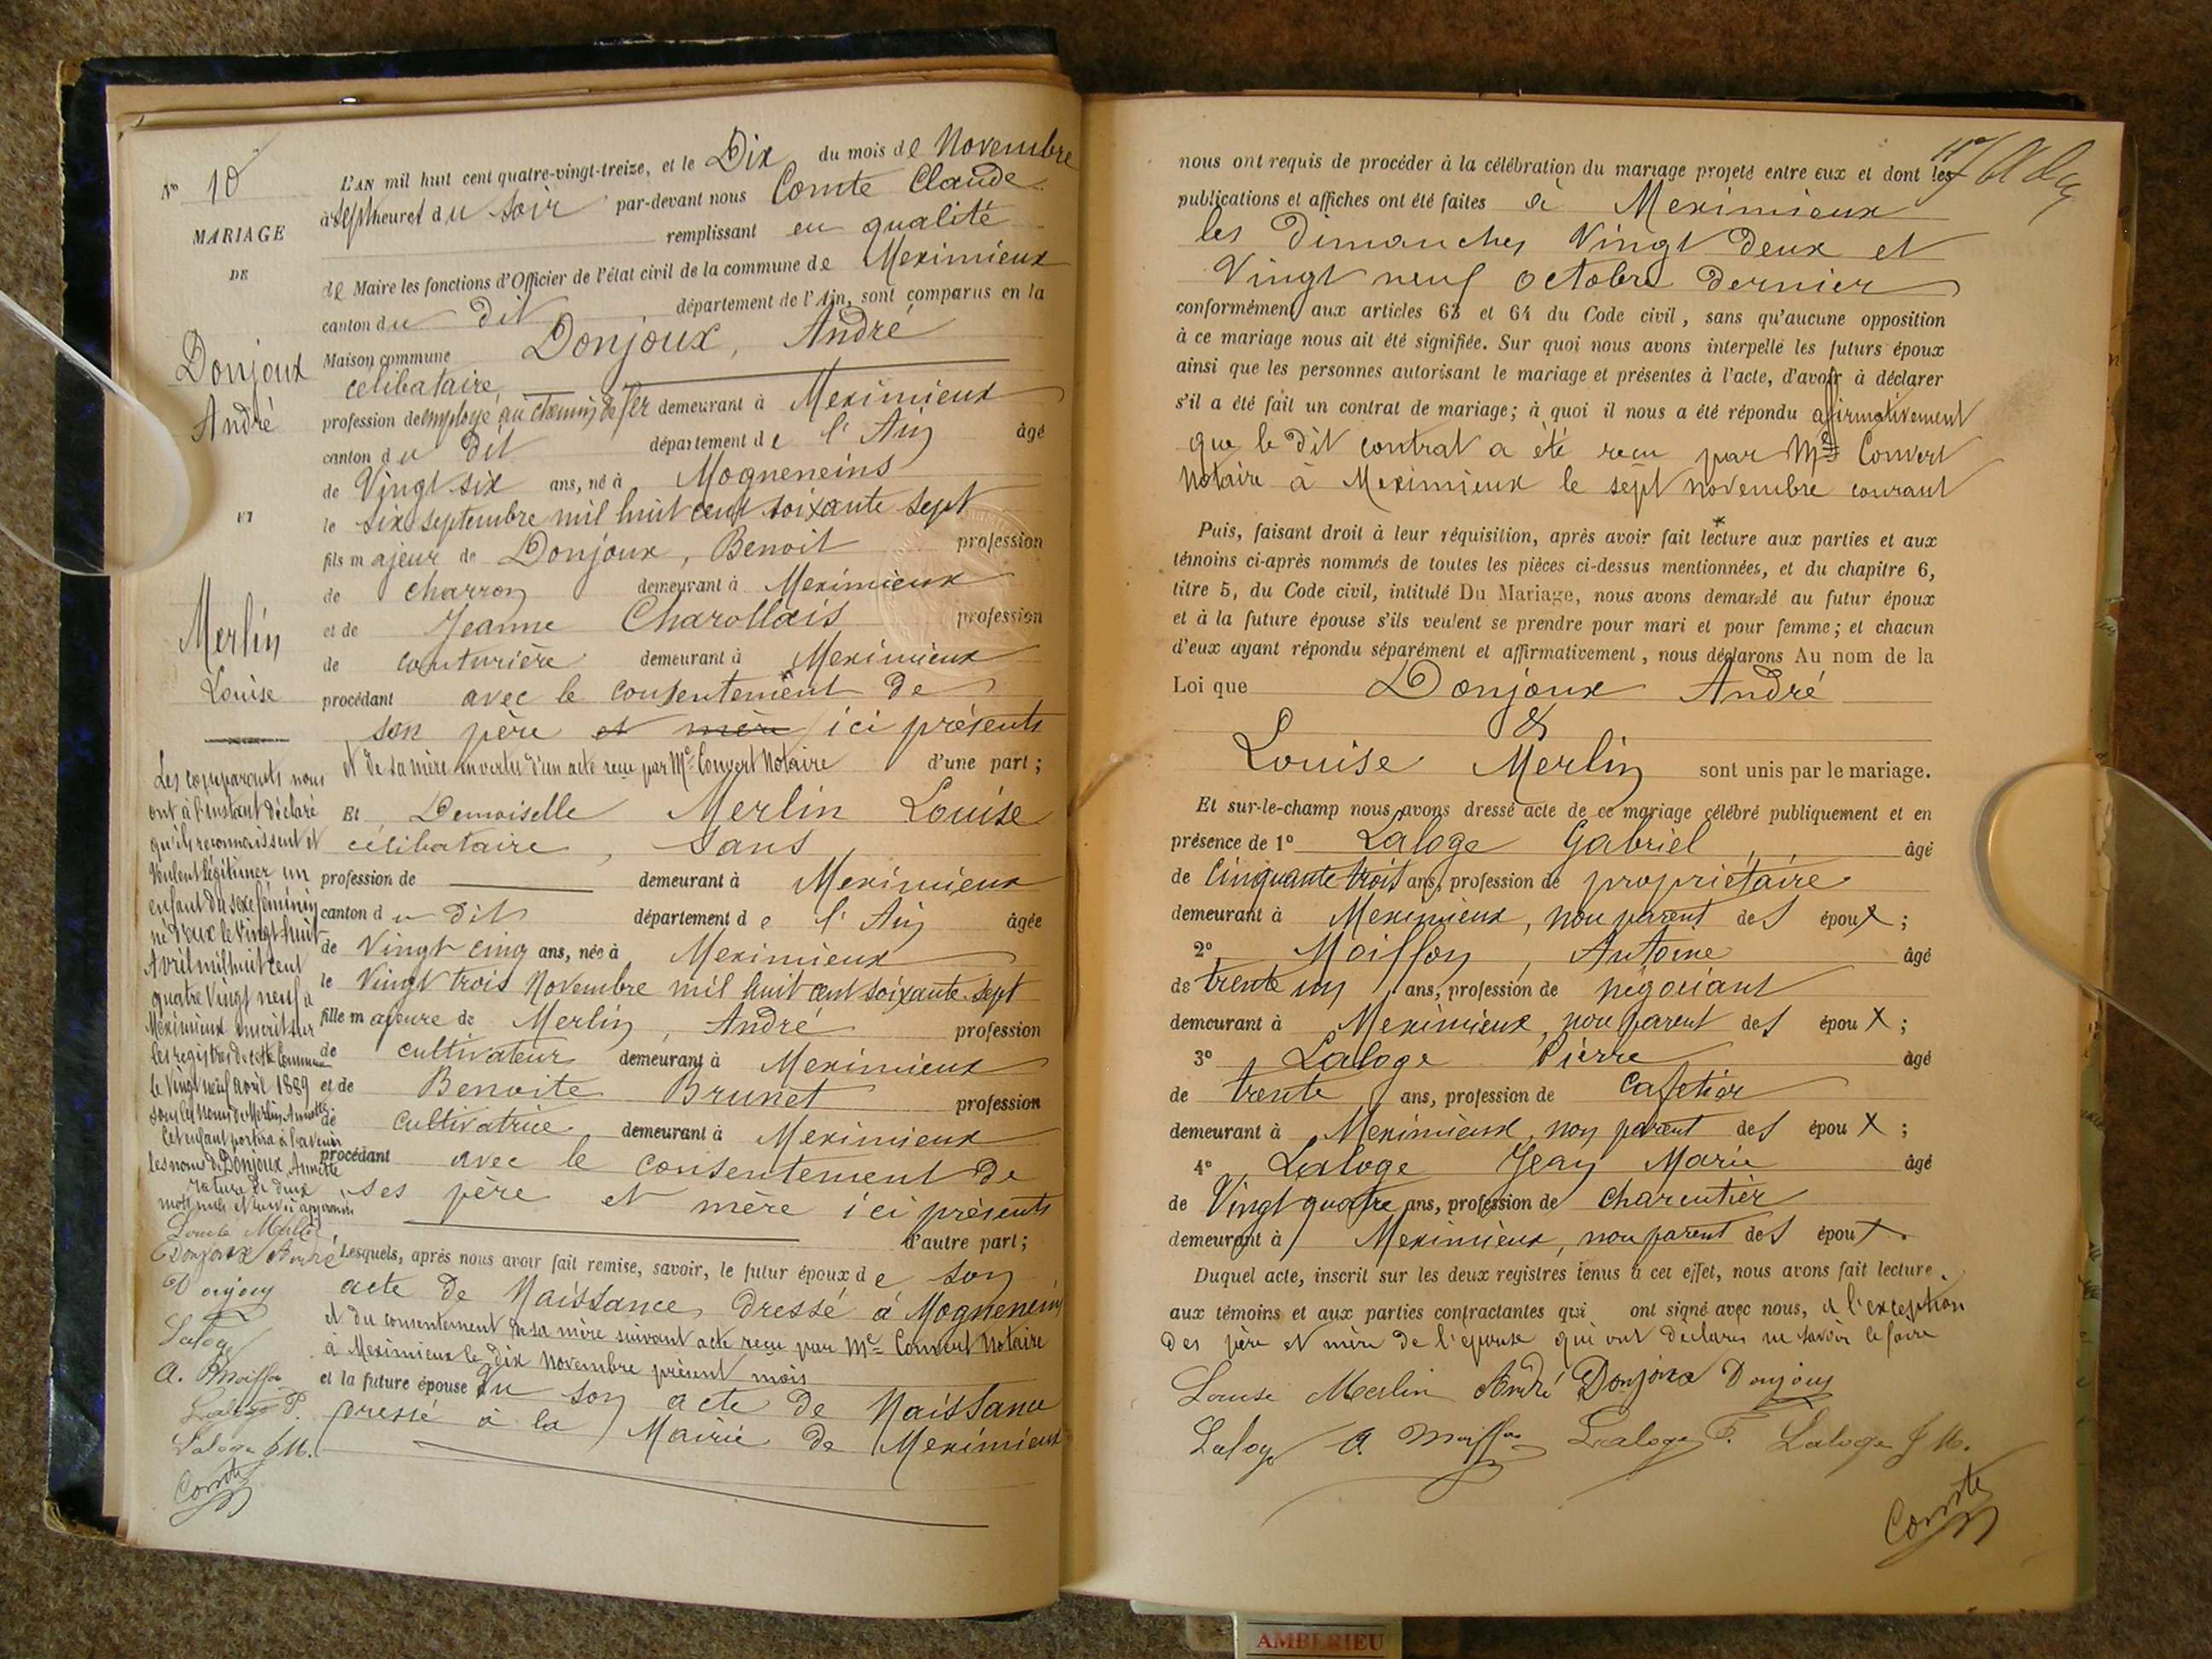 N° 10
MARIAGE
DE
Donjoux
André
ET
Merlin
Louise
Les comparants nous
ont à l'instant déclaré
qu'ils reconnaissent et
veulent légitimer un
enfant du sexe féminin
né d'eux le vingt huit
Avril mil huit cent
quatre vingt neuf à
Meximieux inscrit sur
les registres de cette Commune
le vingt neuf avril 1889
sous les noms de Merlin Annette
Cet enfant portera à l'avenir
les noms de Donjoux Annette
rature de deux
mots nuls et renvoi approuvés
Louise Merlin
Donjoux André
Donjoux
Laloge
A. Moiffon
Laloge P.
Laloge J M.
Comte
L'AN mil huit cent quatre-vingt-treize, et le Dix du mois de Novembre
à sept heures du soir par-devant nous Comte Claude
remplissant en qualité
de Maire les fonctions d'Officier de l'état civil de la commune de Meximieux
canton du dit département de l'Ain, sont comparus en la
Maison commune Donjoux, André
célibataire,
profession de employé au chemin de fer demeurant à Meximieux
canton du dit département de l'Ain âgé
de Vingt six ans, né à Mogneneins
le six septembre mil huit cent soixante sept
fils majeur de Donjoux, Benoit profession
de charron demeurant à Meximieux
et de Jeanne Charollais profession
de couturière demeurant à Meximieux
procédant avec le consentement de
son père et mère ici présents
et de sa mère en vertu d'un acte reçu par Me Convert Notaire d'une part;
Et Demoiselle Merlin Louise
célibataire, sans
profession de demeurant à Meximieux
canton du dit département de l'Ain âgée
de Vingt cinq ans, née à Meximieux
le Vingt trois Novembre mil huit cent soixante sept
fille majeure de Merlin, André profession
de cultivateur demeurant à Meximieux
et de Benoite Brunet profession
de cultivatrice demeurant à Meximieux
procédant avec le consentement de
ses père et mère ici présents
d'autre part;
Lesquels, après nous avoir fait remise, savoir, le futur époux de son
acte de Naissance dressé à Mogneneins
et du consentement de sa mère suivant acte reçu par Me Convert Notaire
à Meximieux le dix Novembre présent mois
et la future épouse Du son acte de Naissance
dressé à la Mairie de Meximieux
nous ont requis de procéder à la célébration du mariage projeté entre eux et dont les
publications et affiches ont été faites à Meximieux
les Dimanches Vingt deux et
Vingt neuf octobre dernier
conformément aux articles 63 et 64 du Code civil, sans qu'aucune opposition
à ce mariage nous ait été signifiée. Sur quoi nous avons interpellé les futurs époux
ainsi que les personnes autorisant le mariage et présentes à l'acte, d'avoir à déclarer
s'il a été fait un contrat de mariage; à quoi il nous a été répondu affirmativement
que le dit contrat a été reçu par Me Convert
Notaire à Meximieux le sept novembre courant
Puis, faisant droit à leur réquisition, après avoir fait lecture aux parties et aux
témoins ci-après nommés de toutes les pièces ci-dessus mentionnées, et du chapitre 6,
titre 5, du Code civil, intitulé Du Mariage, nous avons demandé au futur époux
et à la future épouse s'ils veulent se prendre pour mari et pour femme; et chacun
d'eux ayant répondu séparément et affirmativement, nous déclarons Au nom de la
Loi que Donjoux André
&
Louise Merlin sont unis par le mariage.
Et sur-le-champ nous avons dressé acte de ce mariage célébré publiquement et en
présence de 1° Laloge Gabriel, âgé
de Cinquante trois ans, profession de propriétaire
demeurant à Meximieux, non parent des époux;
2° Moiffon, Antoine âgé
de trente un ans, profession de négociant
demeurant à Meximieux, non parent des époux;
3° Laloge Pierre âgé
de trente ans, profession de Cafetier
demeurant à Meximieux, non parent des époux;
4° Laloge Jean Marie âgé
de Vingt quatre ans, profession de charcutier
demeurant à Meximieux, non parent des époux.
Duquel acte, inscrit sur les deux registres tenus à cet effet, nous avons fait lecture
aux témoins et aux parties contractantes qui ont signé avec nous, à l'exception
des père et mère de l'épouse qui ont déclaré ne savoir le faire
Louise Merlin André Donjoux Donjoux
Laloge A. Moiffon Laloge P. Laloge J M.
Comte
AMBERIEU